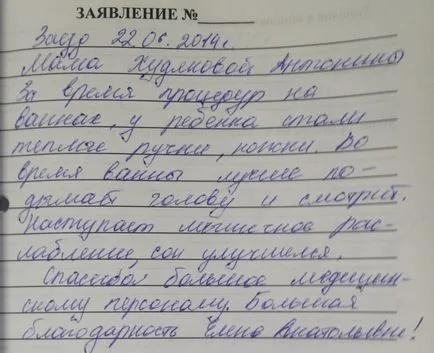 ЗАЯВЛЕНИЕ №
Заезд 22.06.2014г.
Мама Худяковой Антонины
За время процедур на
ваннах, у ребенка стали
теплые ручки, ножки. Во
время ванны лучше по-
дымает голову и смотрит.
Наступает мышечное рас-
слабление, сон улучшился.
Спасибо большое медицин-
скому персоналу. Большая
благодарность Елене Анатольевне!